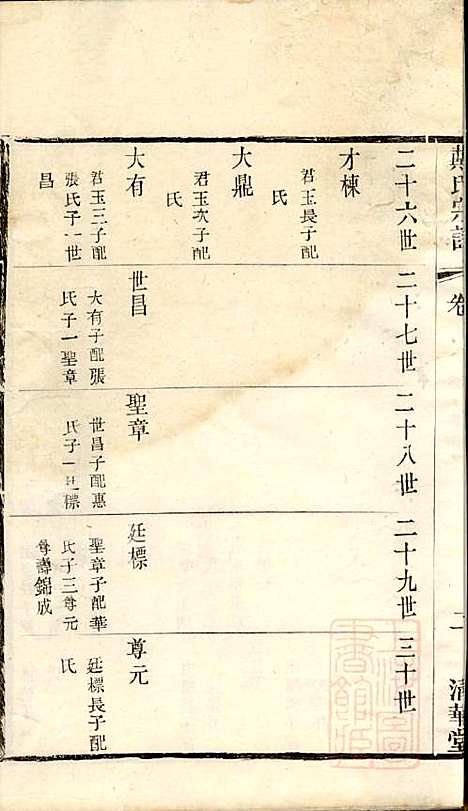 二十六世
二十七世
二十八世
二十九世
三十世
才棟
君玉長子配
氏
大鼎
君玉次子配
氏
大有
君玉三子配
張氏子一世
昌
世昌
大有子配張
氏子一聖章
聖章
世昌子配惠
氏子一廷標
廷標
聖章子配華
氏子三尊元
尊壽錦成
尊元
廷標長子配
氏
戴氏宗譜
卷
二
清華堂